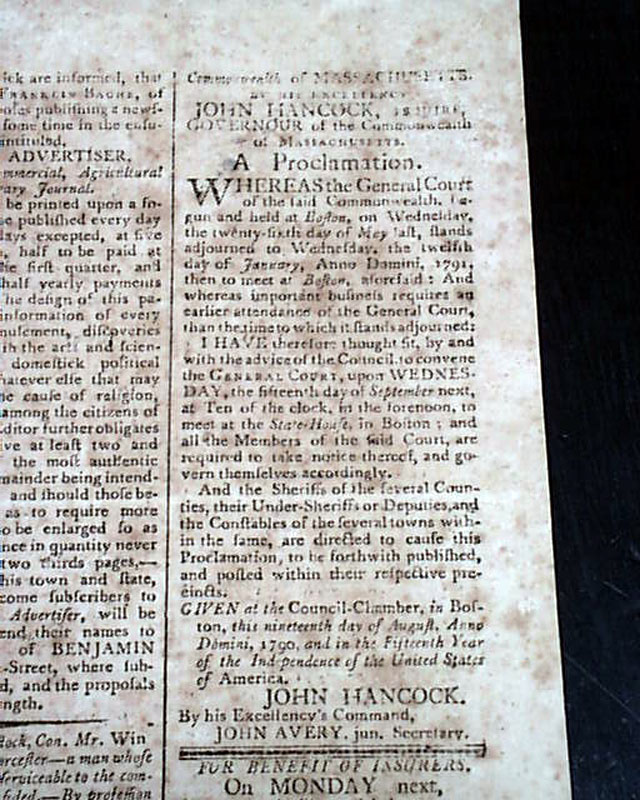 ick are informed, that
FRANKLIN BACHE, of
poses publishing a newſ-
ſome time in the enſu-
intituled,
ADVERTISER,
mmercial, Agricultural
rary Journal.
be printed upon a
ſe publiſhed every day
days excepted, at five
, half to be paid at
he firſt quarter, and
half yearly payments
he deſign of this pa-
information of every
muſement, diſcoveries
th the arts and ſcien-
domeſtick political
hatever elſe that may
he cauſe of religion,
among the citizens of
Editor further obligates
ive at leaſt two and
the moſt authentic
mainder being intend-
and ſhould thoſe be-
as to require more
o be enlarged ſo as
nce in quantity never
two thirds pages,—
his town and ſtate,
come ſubſcribers to
Advertiſer, will be
end their names to
of BENJAMIN
-Street, where ſub-
d, and the propoſals
ength.
tock, Con. Mr. Win
orceſter—a man whoſe
ſerviceable to the com-
ded.—By profeſſion
Commonwealth of MASSACHUSETTS.
BY HIS EXCELLENCY
JOHN HANCOCK, ESQUIRE,
GOVERNOUR of the Commonwealth
of MASSACHUSETTS.
A Proclamation.
WHEREAS the General Court
of the ſaid Commonwealth, be-
gun and held at Boſton, on Wedneſday,
the twenty-ſixth day of May laſt, ſtands
adjourned to Wedneſday, the twelfth
day of January, Anno Domini, 1791,
then to meet at Boſton, aforeſaid: And
whereas important buſineſs requires an
earlier attendance of the General Court,
than the time to which it ſtands adjourned:
I HAVE therefore thought fit, by and
with the advice of the Council to convene
the GENERAL COURT, upon WEDNES-
DAY, the fifteenth day of September next,
at Ten of the clock, in the forenoon, to
meet at the State-Houſe, in Boſton; and
all the Members of the ſaid Court, are
required to take notice thereof, and go-
vern themſelves accordingly.
And the Sheriffs of the ſeveral Coun-
ties, their Under-Sheriffs or Deputies, and
the Conſtables of the ſeveral towns with-
in the ſame, are directed to cauſe this
Proclamation, to be forthwith publiſhed,
and poſted within their reſpective pre-
cincts.
GIVEN at the Council-Chamber, in Boſ-
ton, this nineteenth day of Auguſt, Anno
Domini, 1790, and in the Fifteenth Year
of the Independence of the United States
of America.
JOHN HANCOCK.
By his Excellency's Command,
JOHN AVERY, jun. Secretary.
FOR BENEFIT OF INSURERS.
On MONDAY next,